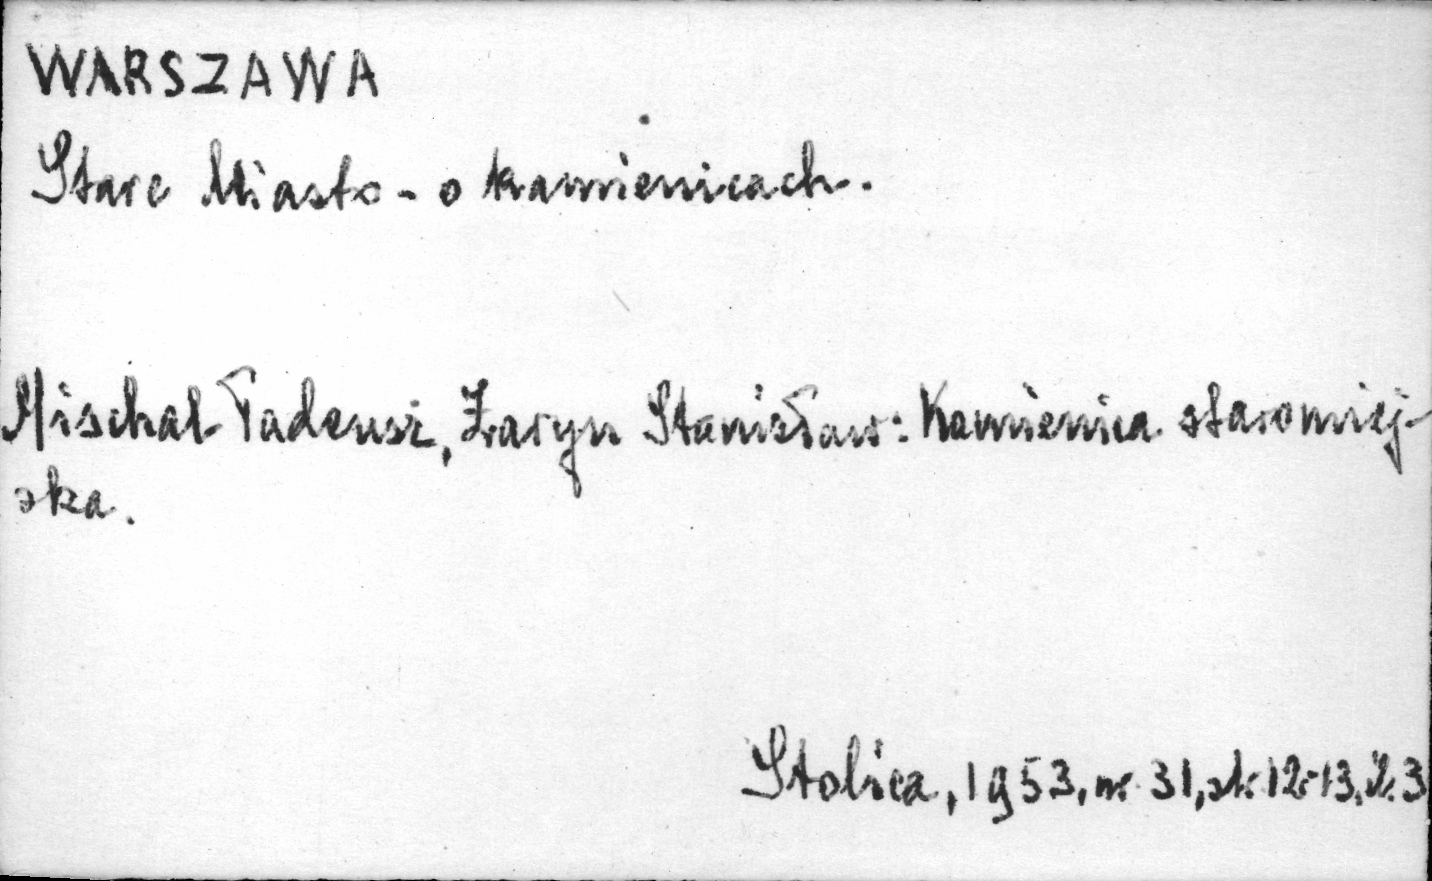 WARSZAWA
Stare Miasto - o kamienicach.
Mischal Tadeusz, Żaryn Stanisław: Kamienica staromiej-
ska.
Stolica, 1953, nr 31, st. 12-13, il. 3